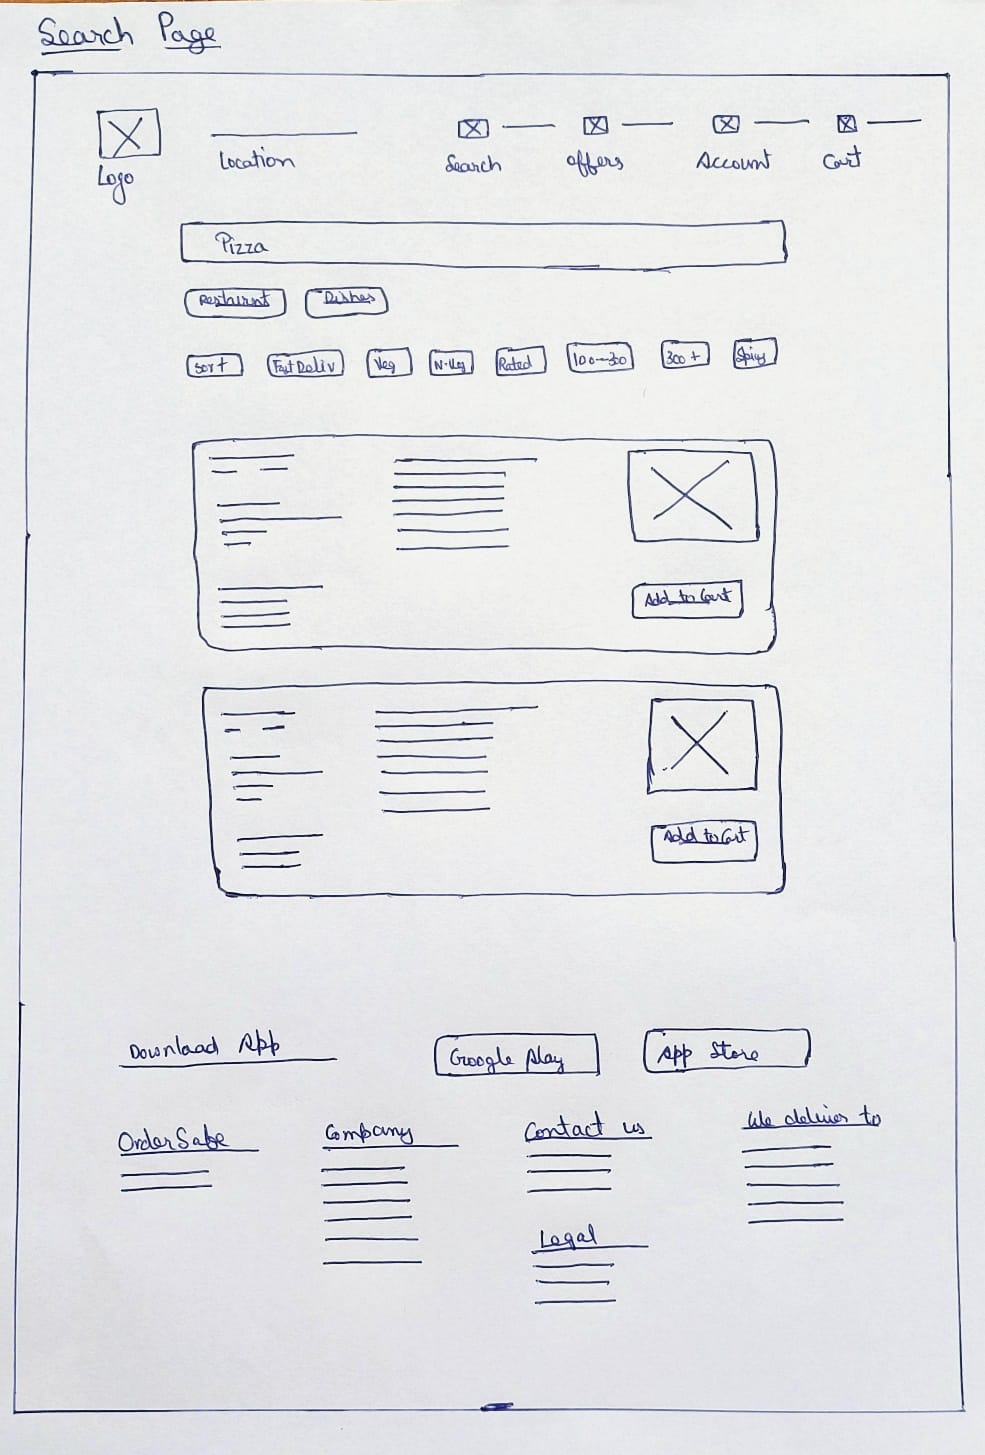 Search Page
Logo
Location
Search
Offers
Account
Cart
Pizza
Restaurnt
Dishes
Sort
Fast Deliv
Veg
N-Veg
Rated
100-300
300+
Spicy
Add to Cart
Add to Cart
Download App
Google Play
App Store
OrderSafe
Company
Contact us
We deliver to
Legal